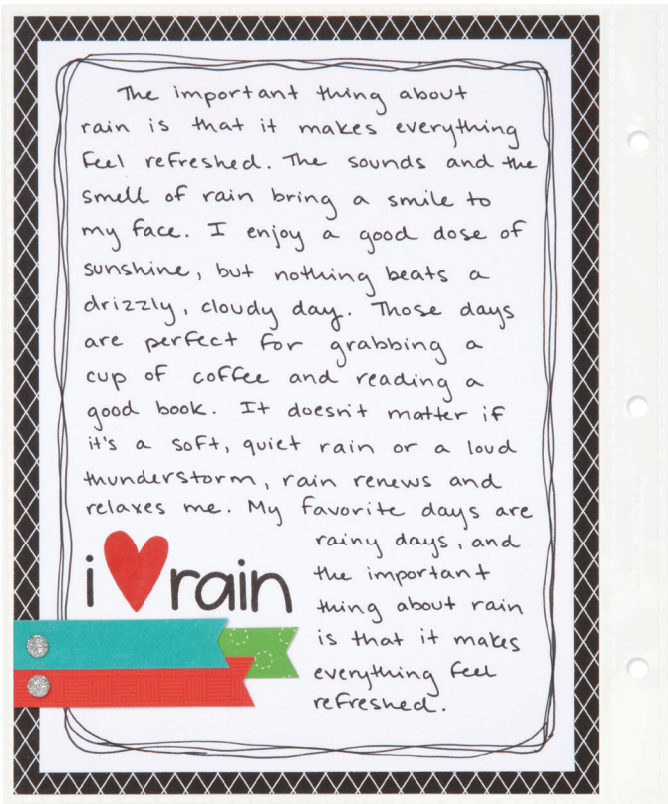 The important thing about
rain is that it makes everything
feel refreshed. The sounds and the
smell of rain bring a smile to
my face. I enjoy a good dose of
sunshine, but nothing beats a
drizzly, cloudy day. Those days
are perfect for grabbing a
cup of coffee and reading a
good book. It doesn't matter if
it's a soft, quiet rain or a loud
thunderstorm, rain renews and
relaxes me. My favorite days are
rainy days, and
the important
thing about rain
is that it makes
everything feel
refreshed.
i ♥ rain